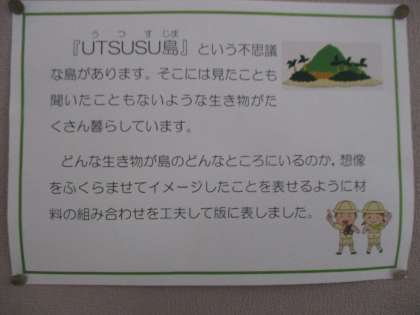 うつすじま
『UTSUSU島』という不思議
な島があります。そこには見たことも
聞いたこともないような生き物がた
くさん暮らしています。
どんな生き物が島のどんなところにいるのか，想像
をふくらませてイメージしたことを表せるように材
料の組み合わせを工夫して版に表しました。